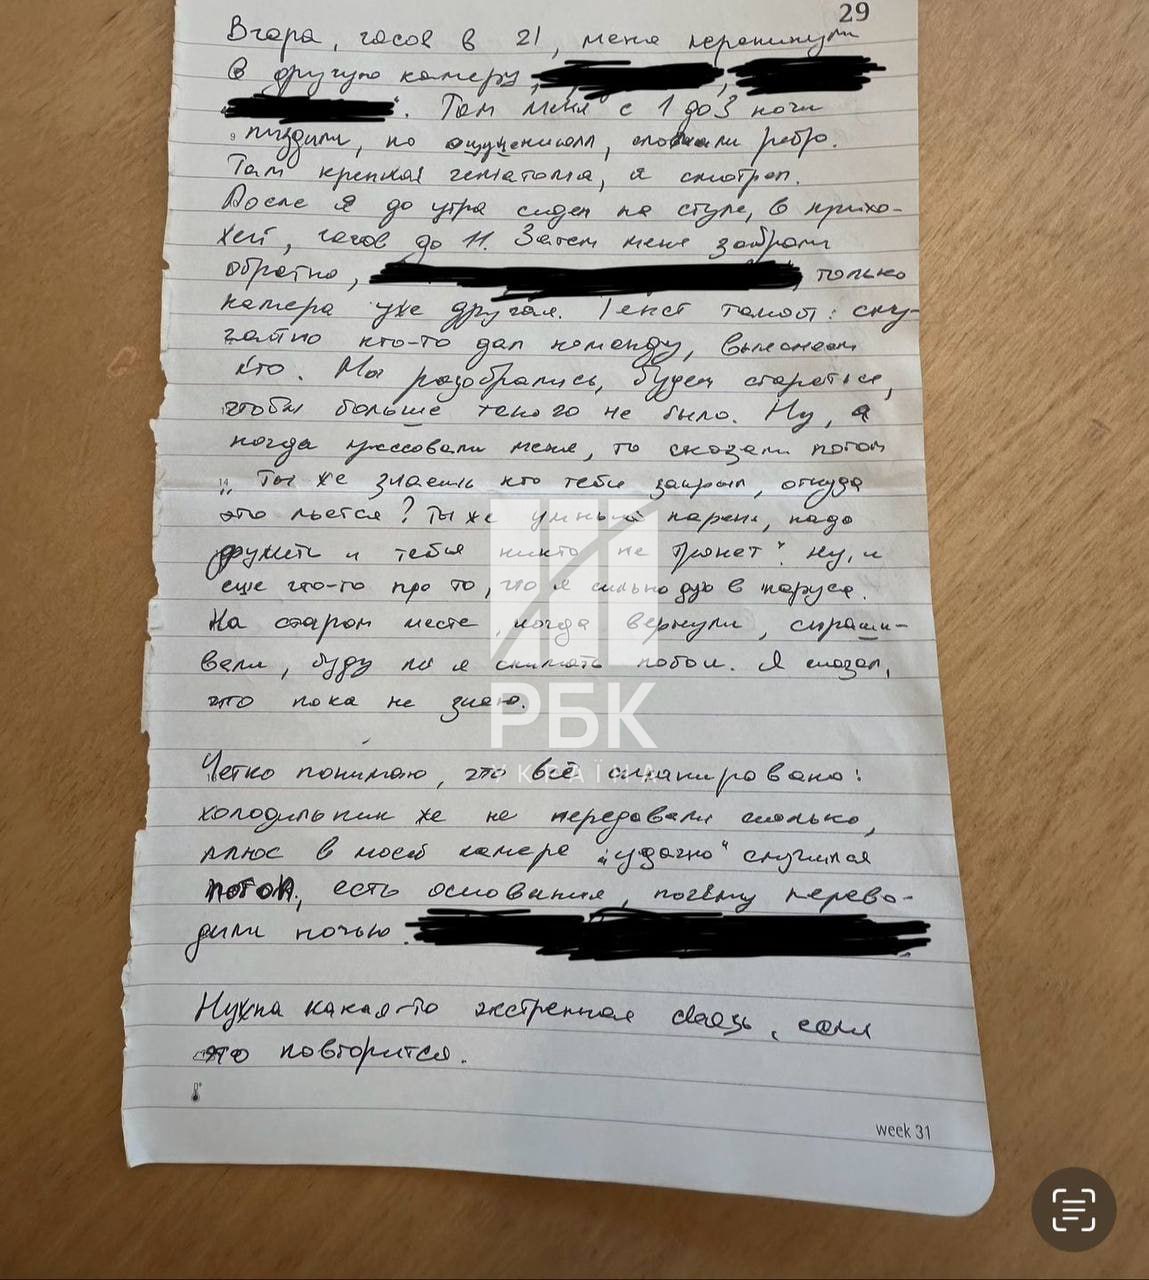 29
Вчора, часов в 21, меня перекинули
в другую камеру,
". Там меня с 1 до 3 ночи
9 пиздили, по ощущениям, сломали ребро.
Там крепкая гематома, я смотрел.
После я до утра сидел на стуле, в прихо-
жей, часов до 11. Затем меня забрали
обратно, только
камера уже другая. Текст такой: ску-
кто-то дал команду, выясняем
кто. Мы разобрались, будем стараться,
чтобы больше такого не было. Ну, а
когда прессовали меня, то сказали потом
14 „ Ты же знаешь кто тебя закрыл, откуда
это льется? Ты же умный парень, надо
дружить и тебя никто не тронет" Ну, и
еще что-то про то, что я сильно дую в паруса.
На старом месте, когда вернули, спраши-
вали, буду ли я снимать побои. Я сказал,
что пока не знаю.
РБК
УКРАЇНА
Четко понимаю, что всё спланировано:
холодильник же не передавали сколько,
плюс в моей камере „удачно" случился
потоп, есть основания, почему перево-
дили ночью.
Нужна какая-то экстренная связь, если
это повторится.
week 31